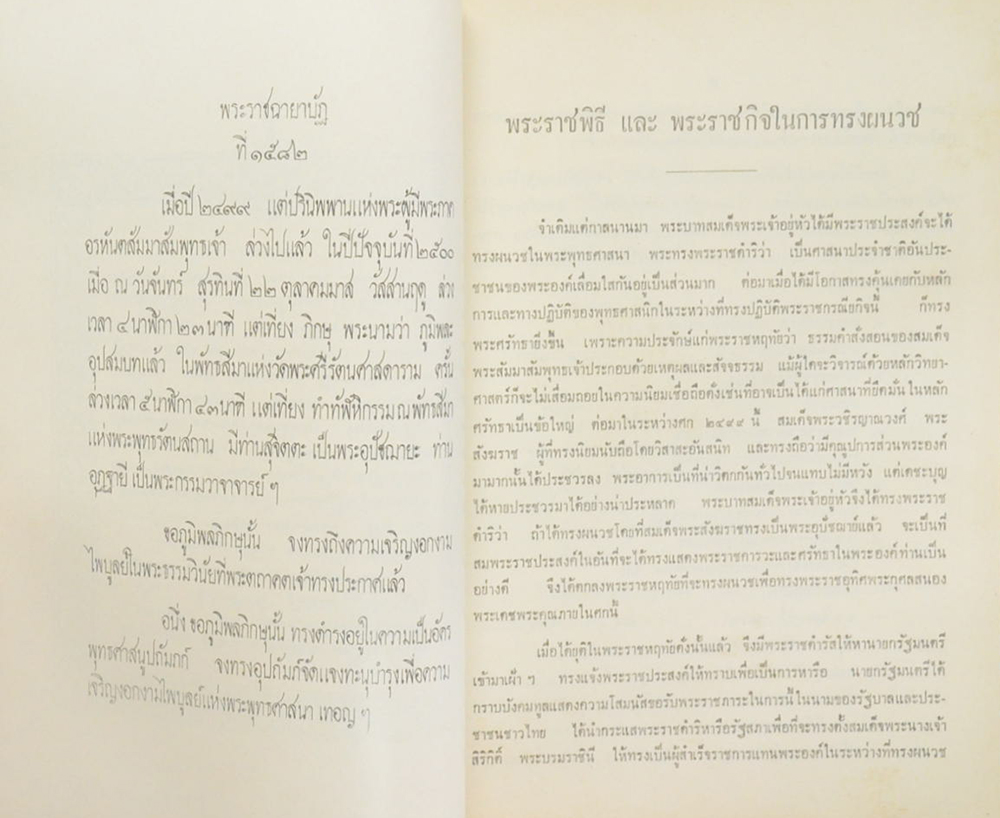 พระราชฉายาบัฏ
ที่ ๑๕๘๒
เมื่อปี ๒๔๙๙ แต่ปรินิพพานแห่งพระผู้มีพระภาค
อรหันตสัมมาสัมพุทธเจ้า ล่วงไปแล้ว ในปีปัจจุบันที่ ๒๕๐๐
เมื่อ ณ วันจันทร์ สุรทินที่ ๒๒ ตุลาคมมาส วัสสานฤดู ล่วง
เวลา ๔ นาฬิกา ๒๓ นาที แต่เที่ยง ภิกษุ พระนามว่า ภูมิพละ
อุปสมบทแล้ว ในพัทธสีมาแห่งวัดพระศรีรัตนศาสดาราม ครั้น
ล่วงเวลา ๕ นาฬิกา ๔๓ นาที แต่เที่ยง ทำทัฬหิกรรม ณ พัทธสีมา
แห่งพระพุทธรัตนสถาน มีท่านสุจิตตะ เป็นพระอุปัชฌายะ ท่าน
อุฏฐายี เป็นพระกรรมวาจาจารย์ ๆ
ขอภูมิพลภิกษุนั้น จงทรงถึงความเจริญงอกงาม
ไพบูลย์ในพระธรรมวินัยที่พระตถาคตเจ้าทรงประกาศแล้ว
อนึ่ง ขอภูมิพลภิกษุนั้น ทรงดำรงอยู่ในความเป็นอัคร
พุทธศาสนูปถัมภก์ จงทรงอุปถัมภ์จัดแจงทะนุบำรุงเพื่อความ
เจริญงอกงามไพบูลย์แห่งพระพุทธศาสนา เทอญ ๆ
พระราชพิธี และ พระราชกิจในการทรงผนวช
จำเดิมแต่กาลนานมา พระบาทสมเด็จพระเจ้าอยู่หัวได้มีพระราชประสงค์จะได้
ทรงผนวชในพระพุทธศาสนา พระทรงพระราชดำริว่า เป็นศาสนาประจำชาติอันประ-
ชาชนของพระองค์เลื่อมใสกันอยู่เป็นส่วนมาก ต่อมาเมื่อได้มีโอกาสทรงคุ้นเคยกับหลัก
การและทางปฏิบัติของพุทธศาสนิกในระหว่างที่ทรงปฏิบัติพระราชกรณียกิจนี้ ก็ทรง
พระศรัทธายิ่งขึ้น เพราะความประจักษ์แก่พระราชหฤทัยว่า ธรรมคำสั่งสอนของสมเด็จ
พระสัมมาสัมพุทธเจ้าประกอบด้วยเหตุผลและสัจจธรรม แม้ผู้ใดจะวิจารณ์ด้วยหลักวิทยา-
ศาสตร์ก็จะไม่เสื่อมถอยในความนิยมเชื่อถือดั่งเช่นที่อาจเป็นได้แก่ศาสนาที่ยึดมั่นในหลัก
ศรัทธาเป็นข้อใหญ่ ต่อมาในระหว่างศก ๒๔๙๙ นี้ สมเด็จพระวชิรญาณวงศ์ พระ
สังฆราช ผู้ที่ทรงนิยมนับถือโดยวิสาสะอันสนิท และทรงถือว่ามีคุณูปการส่วนพระองค์
มามากนั้นได้ประชวรลง พระอาการเป็นที่น่าวิตกกันทั่วไปจนแทบไม่มีหวัง แต่เดชะบุญ
ได้หายประชวรมาได้อย่างน่าประหลาด พระบาทสมเด็จพระเจ้าอยู่หัวจึงได้ทรงพระราช
ดำริว่า ถ้าได้ทรงผนวชโดยที่สมเด็จพระสังฆราชทรงเป็นพระอุปัชฌาย์แล้ว จะเป็นที่
สมพระราชประสงค์ในอันที่จะได้ทรงแสดงพระราชคารวะและศรัทธาในพระองค์ท่านเป็น
อย่างดี จึงได้ตกลงพระราชหฤทัยที่จะทรงผนวชเพื่อทรงพระราชอุทิศพระกุศลสนอง
พระเดชพระคุณภายในศกนี้
เมื่อได้ยุติในพระราชหฤทัยดั่งนั้นแล้ว จึงมีพระราชดำรัสให้หานายกรัฐมนตรี
เข้ามาเฝ้า ฯ ทรงแจ้งพระราชประสงค์ให้ทราบเพื่อเป็นการหารือ นายกรัฐมนตรีได้
กราบบังคมทูลแสดงความโสมนัสขอรับพระราชภาระในการนี้ในนามของรัฐบาลและประ-
ชาชนชาวไทย ได้นำกระแสพระราชดำริหารือรัฐสภาเพื่อที่จะทรงตั้งสมเด็จพระนางเจ้า
สิริกิติ์ พระบรมราชินี ให้ทรงเป็นผู้สำเร็จราชการแทนพระองค์ในระหว่างที่ทรงผนวช